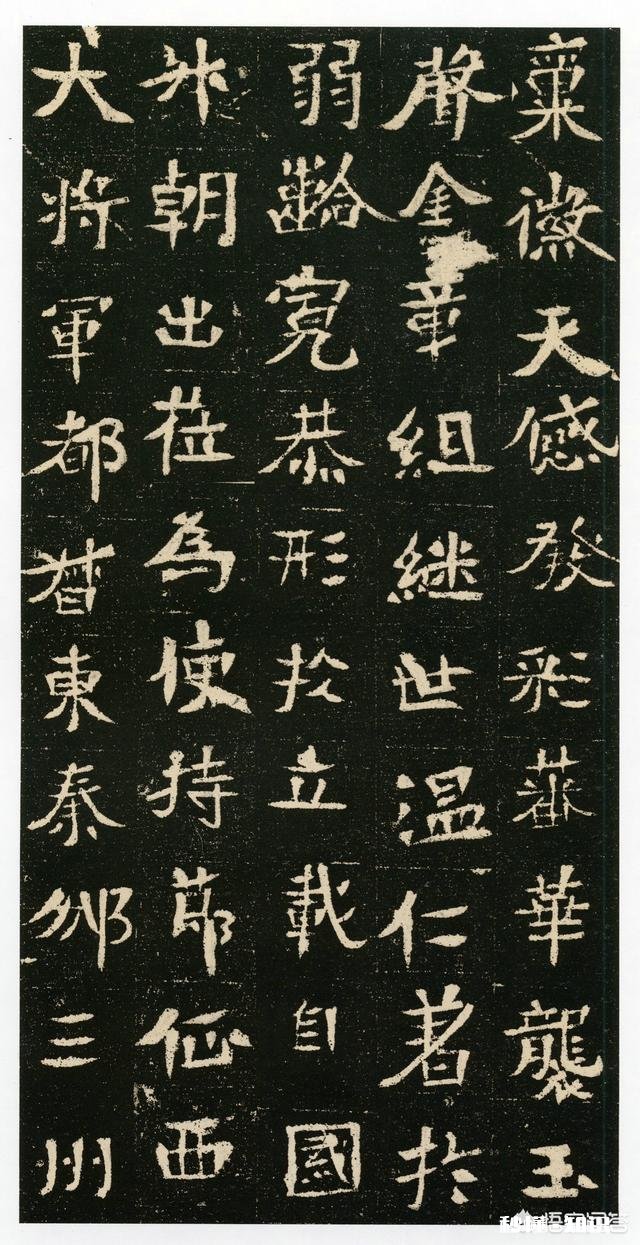 稟徽天感發彩蕃華襲玉
聲金章組継世温仁著扵
弱齡寬恭形扵立載自國
升朝出莅為使持節征西
大將軍都督東秦邠三州
悟空问答